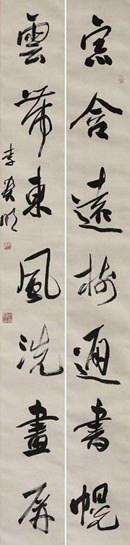 窗含遠樹通書幌
雲帶東風洗畫屏